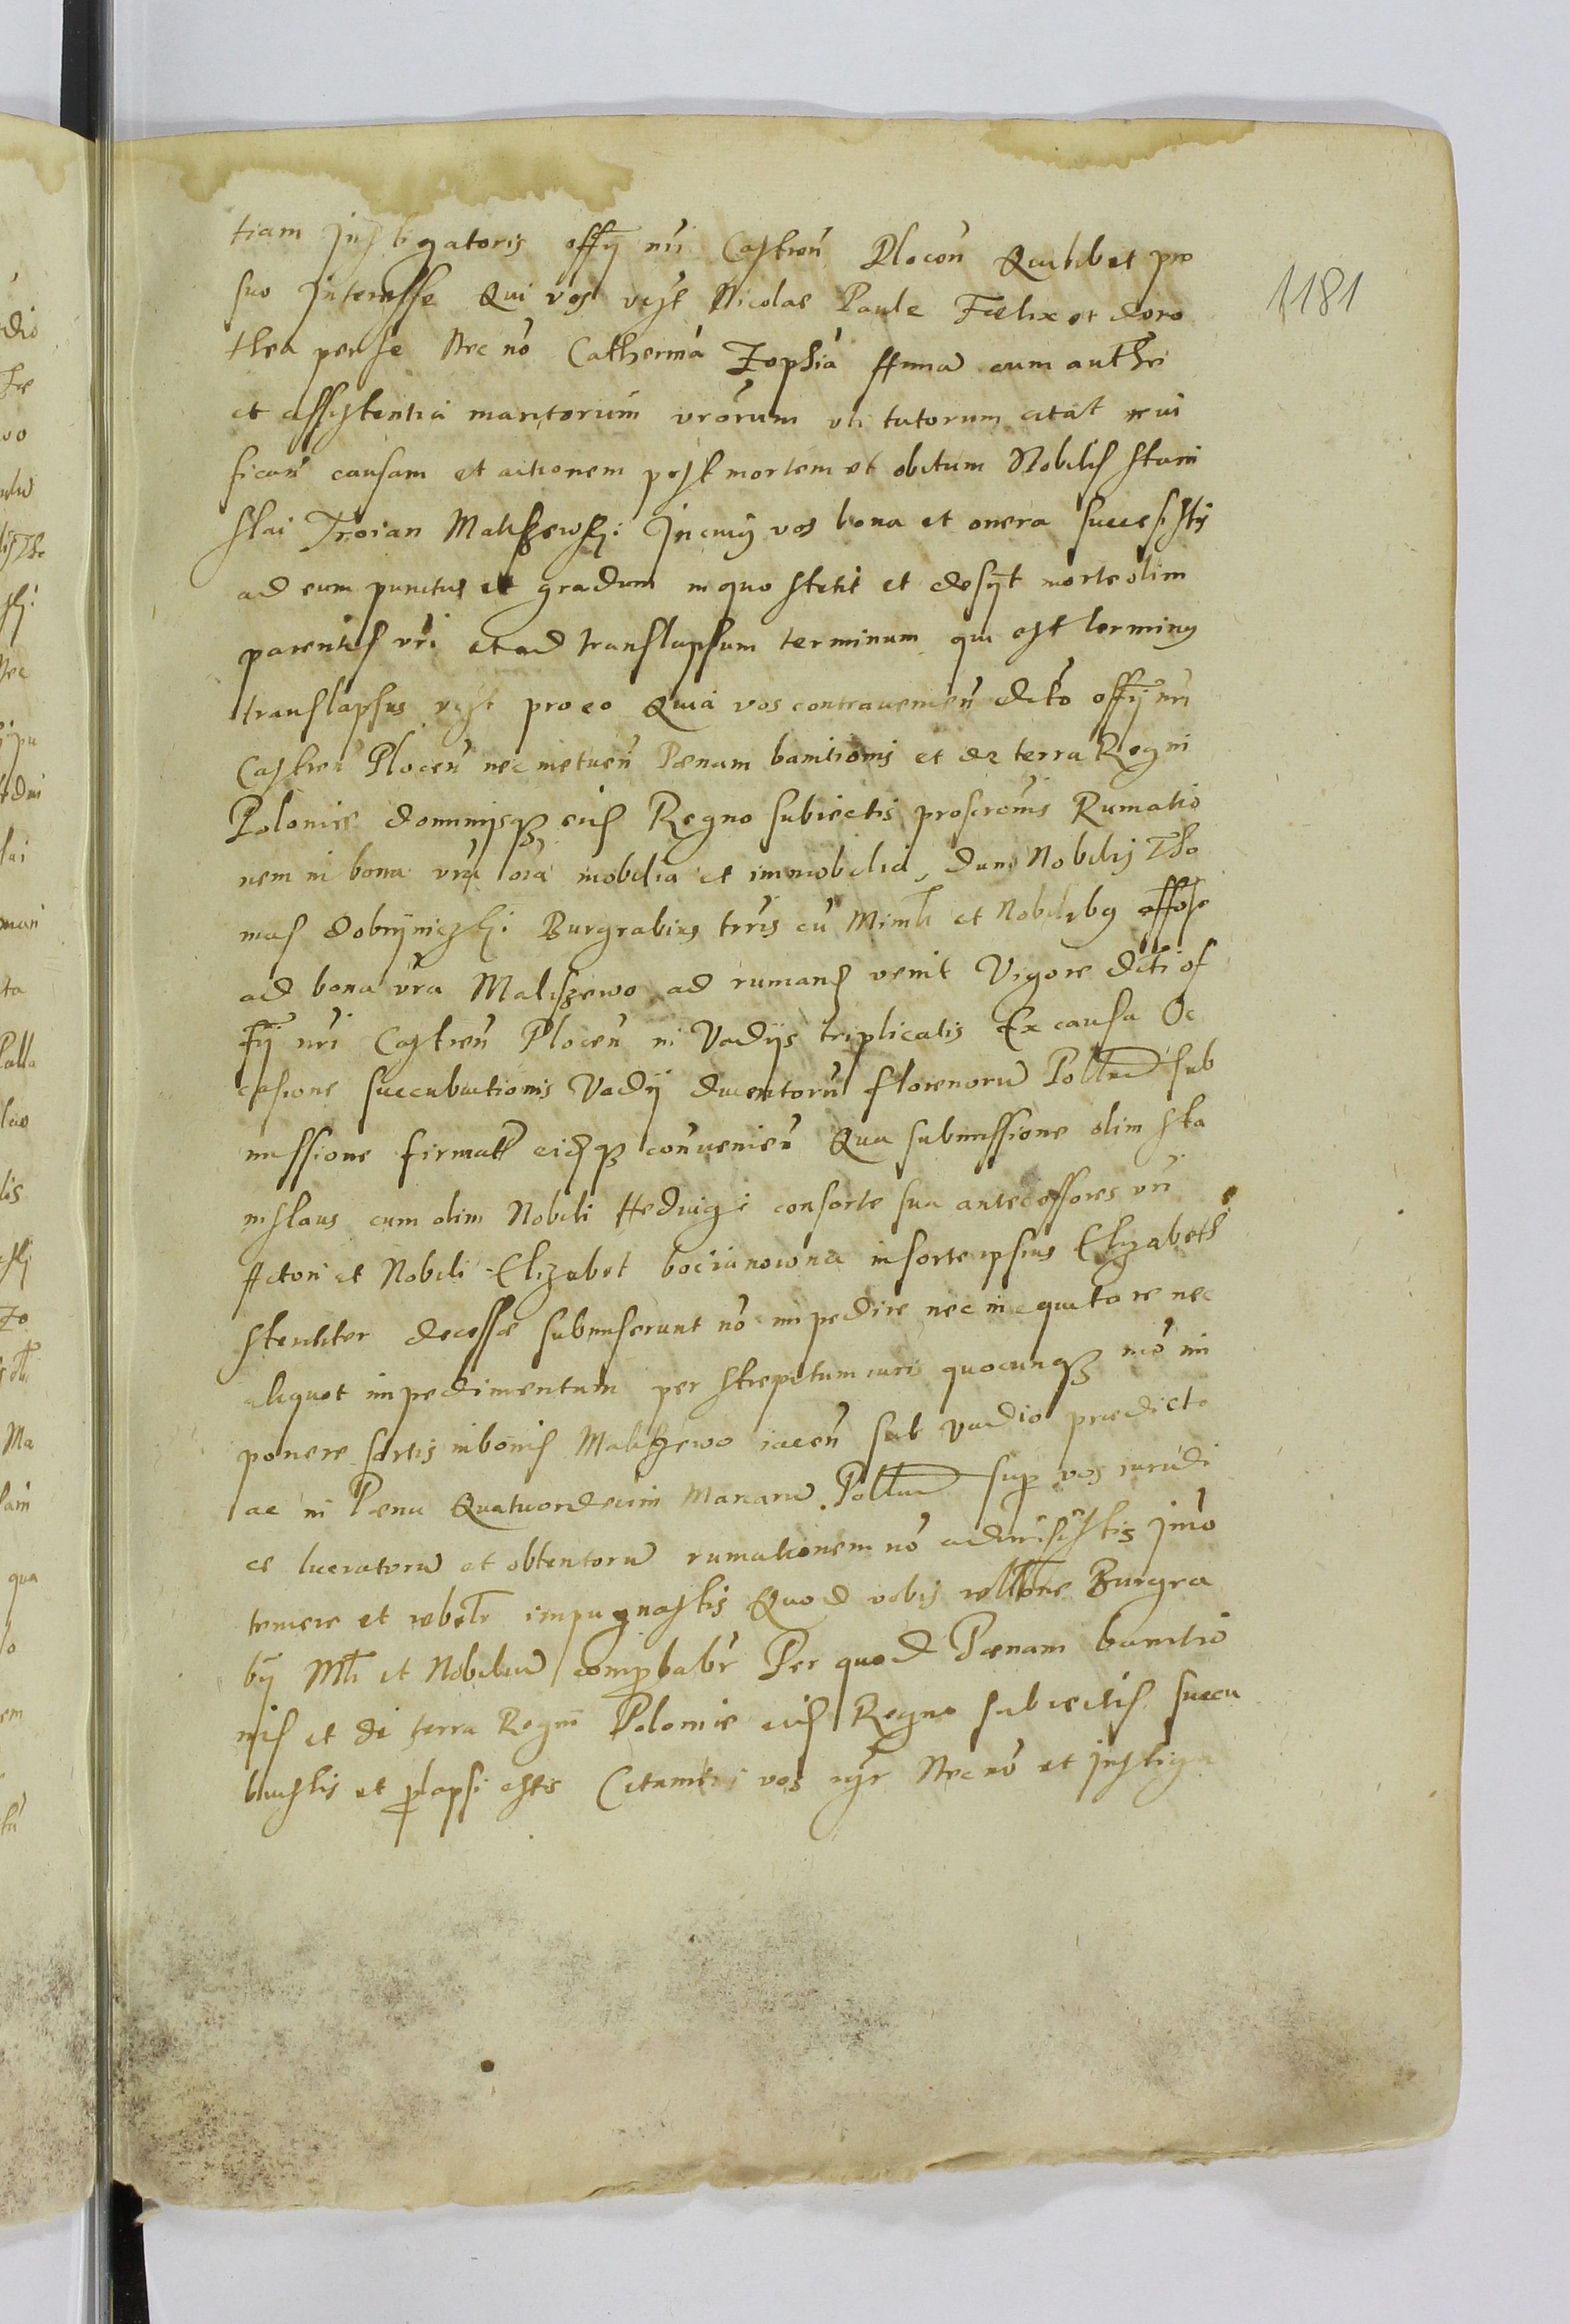 tiam Instigatoris offÿ nri Castren Plocen Quilibet pro
suo Interesse Qui vos vtst Nicolae Paule Faelix et doro
thea per se Nec nō Catherina Zophia Anna cum authei
et assistentia maritorum vrōrum vti tutorum citat revi
fican causam et actionem post mortem et obitum Nobilis Stani
slai Troian Maliszewski: In cuiq vos bona et onera successistis
ad eum punctus et gradum in quo stetit et desÿt morte olim
parentis vri et ad translapsum terminum qui est terminq
translapsus vtst pro eo Quia vos contravenien dicto offÿ nri
Castren Plocen nec metuen Paenam banitionis et de terra Regni
Poloniae dominijsq eius Regno subiectis proscrōnis Rumatio
nem in bona vra oīa mobilia et immobilia, dum Nobilis Tho
mas dobrÿniczki: Burgrabius trris cū Minli et Nobilibq
ad bona vra Maliszewo ad rumand venit Vigore dicti of
fÿ nri Castren Plocen in Vadijs triplicatis Ex causa Oc
casione succubuitionis Vadÿ ducentorū florenorū Pollm sub
missione firmatt eidsq convenien Qua submissione olim Sta
nislaus cum olim Nobili Hedvigi consorte sua antecessores vri
Actori et Nobili Elizabet bocianowna in sorte ipsius Elizabeth
steriliter decessae submiserunt nō impedire nec inequitare nec
aliquot impedimentum per strepitum iuris quocunq mō im
ponere sortis in bonis Maliszewo iacen sub vadio praedicto
ac in Paena Quatuordecim Marcarū Pollm sup vos iuridi
ce lucratorū et obtentorū rumationem nō admisistis Imō
temere et rebelr impugnastis Quod vobis relltione Burgra
bÿ Mli et Nobiliū comprobabr Per quod Paenam banitio
nis et de terra Regni Poloniae eius Regno subiectis succu
buistis et plapsi estis Citamini vos igr Nec nō et Instiga
1181